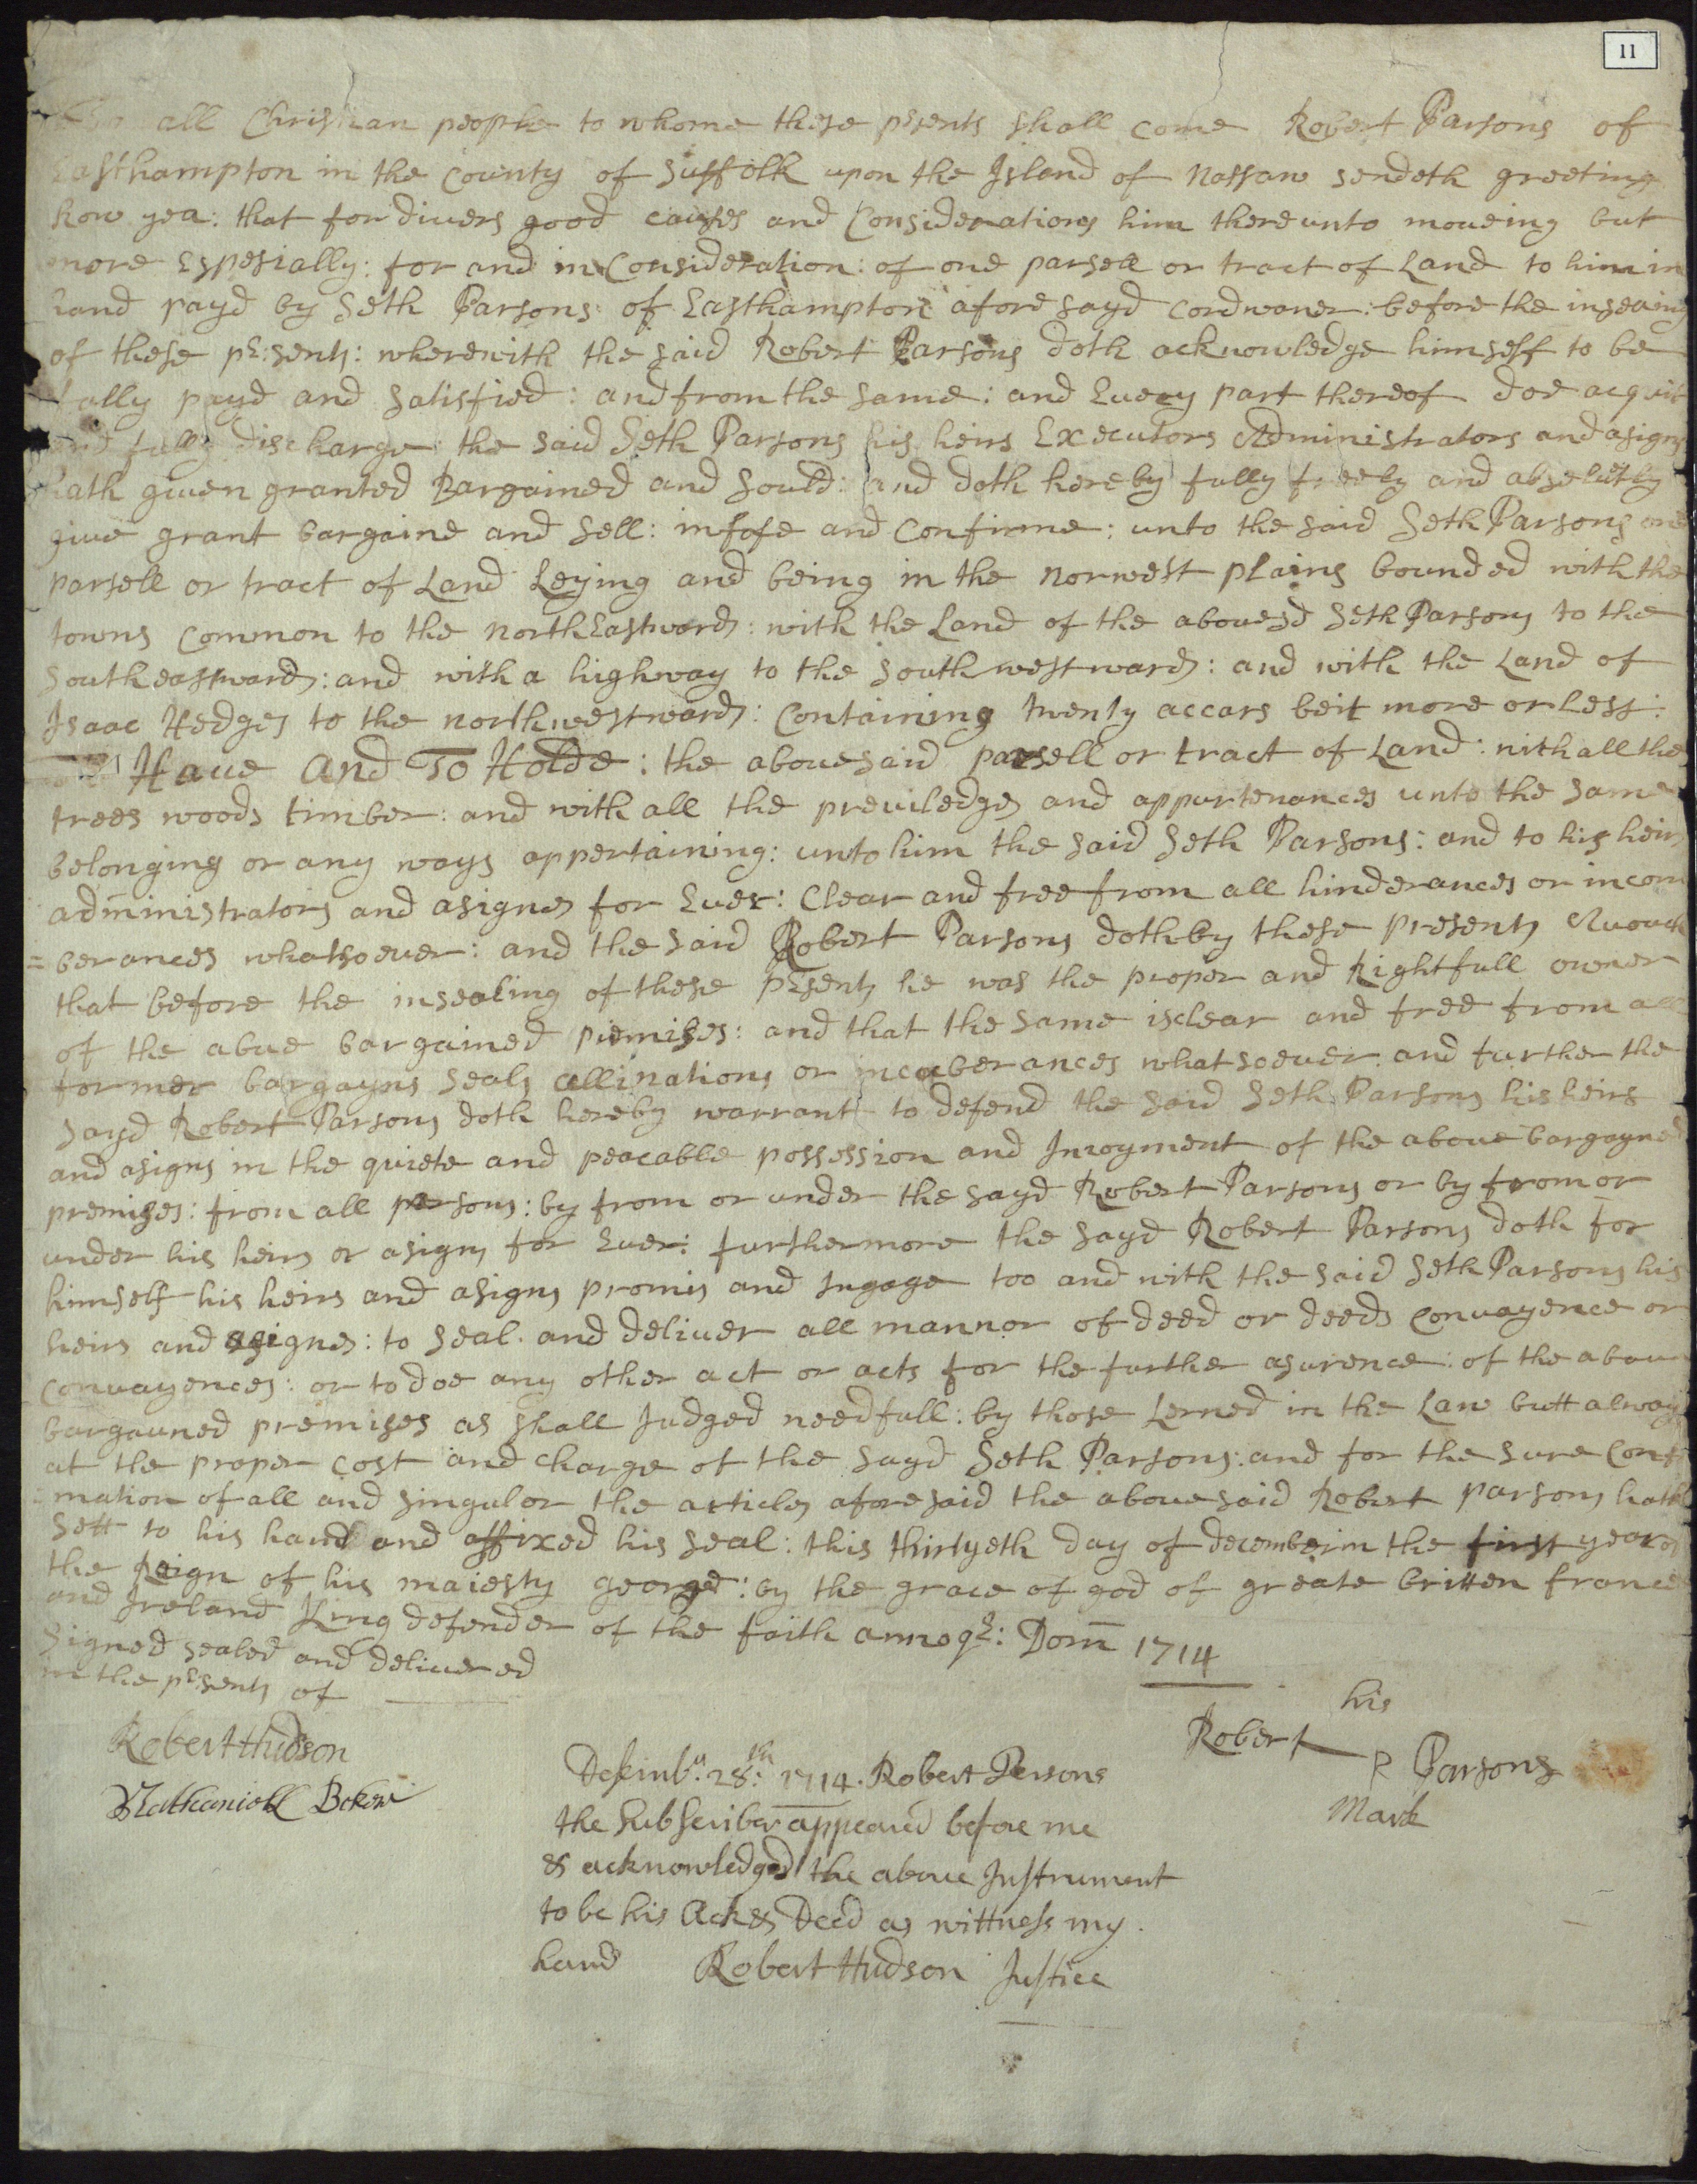 11
all Christian people to whome these prsents shall come Robert Parsons of
Easthampton in the County of Suffolk upon the Island of Nassaw sendeth greeting
know yea: that for divers good causes and Considerations him thereunto moveing but
more Espesially: for and in Consideration: of one parsell or tract of Land to him in
hand payd by Seth Parsons of Easthampton aforesayd Cordwaner: before the insealing
of these pr:sents: wherewith the said Robert Parsons doth acknowledge himself to be
fully payd and Satisfied: and from the same: and Every part thereof doe acquit
and fully discharge the said Seth Parsons his heirs Executors Administrators and asigns
hath given granted Bargained and Sould: and doth hereby fully freely and absolutly
give grant bargaine and Sell: infefe and Confirme: unto the said Seth Parsons one
parsell or tract of Land Leying and being in the norwest plains bounded with the
towns Common to the northEastward: with the Land of the abovesd Seth Parsons to the
Southeastward: and with a highway to the Southwestward: and with the Land of
Isaac Hedges to the northwestward: Containing twenty accars beit more or Less:
Have and To Holde: the abovesaid parsell or tract of Land: with all the
trees woods timber: and with all the previledges and appurtenances unto the same
belonging or any ways appertaining: unto him the said Seth Parsons: and to his heirs
administrators and asignes for Ever: Clear and free from all hinderances or incom
=berances whatsoever: and the said Robert Parsons doth by these presents Avouch
that before the insealing of these prsents he was the proper and Rightfull owner
of the abve bargained premises: and that the same is clear and free from all
former bargayns seals allinations or incuberances whatsoever and further the
sayd Robert Parsons doth hereby warrant to defend the said Seth Parsons his heirs
and asigns in the quiete and peacable possession and Inioyment of the above bargayned
premises: from all persons: by from or under the sayd Robert Parsons or by from or
under his heirs or asigns for Ever: furthermore the sayd Robert Parsons doth for
himself his heirs and asigns promis and Ingage too and with the said Seth Parsons his
heirs and asignes: to seal. and deliver all mannor of deed or deeds Convayence or
Convayences: or to doe any other act or acts for the further asurence: of the above
bargauned premises as shall Judged needfull: by those Lerned in the Law butt alway
at the proper cost and charge of the sayd Seth Parsons: and for the sure Confi
=mation of all and singulor the articles aforesaid the abovesaid Robert parsons hath
sett to his hand and affixed his seal: this thirtyeth day of decembeim the first year of
the Reign of his maiesty george: by the grace of god of greate britten france
and Ireland King defender of the faith annoqe: Dom 1714
Signed sealed and delivered
in the prsents of
Robert Hudson
Nathaniell Baker
his
Robert P Parsons
Mark
Desembr. 28th: 1714. Robert Persons
the Subscriber appeared before me
& acknowledged the above Instrument
to be his Ack & Deed as wittness my.
hand Robert Hudson Justice